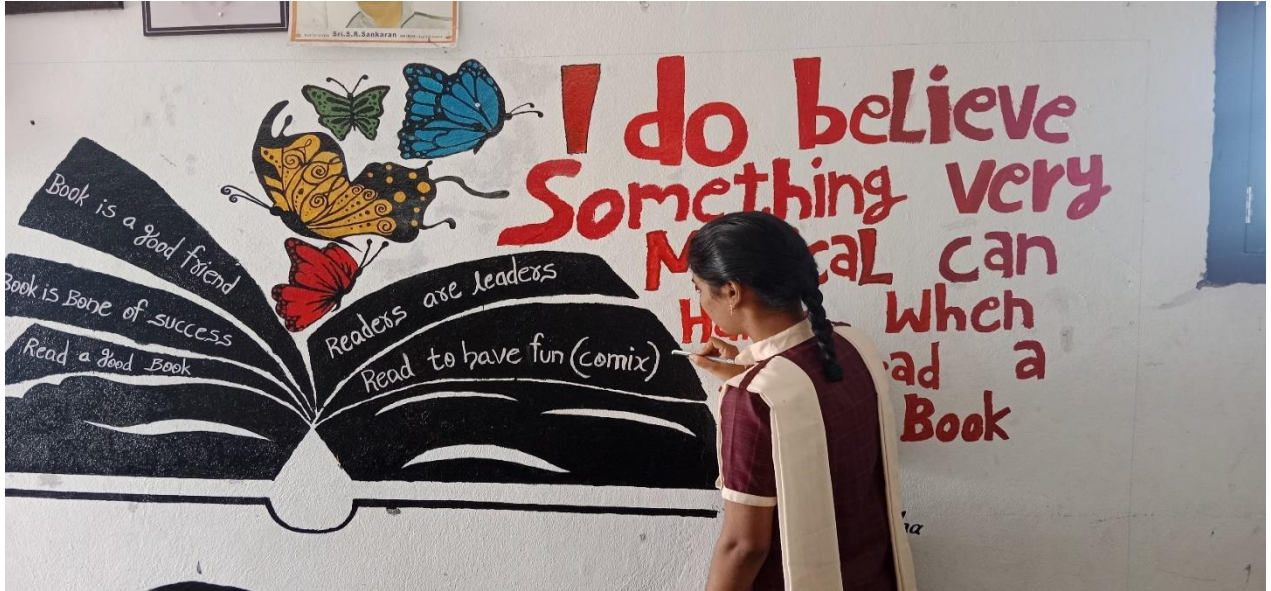 Sri.S.R.Sankaran
I do beLieve
Something very
caL can
When
ad a
Book
Book is a good friend
Book is Bone of success
Read a good Book
Readers are leaders
Read to have fun (comix)